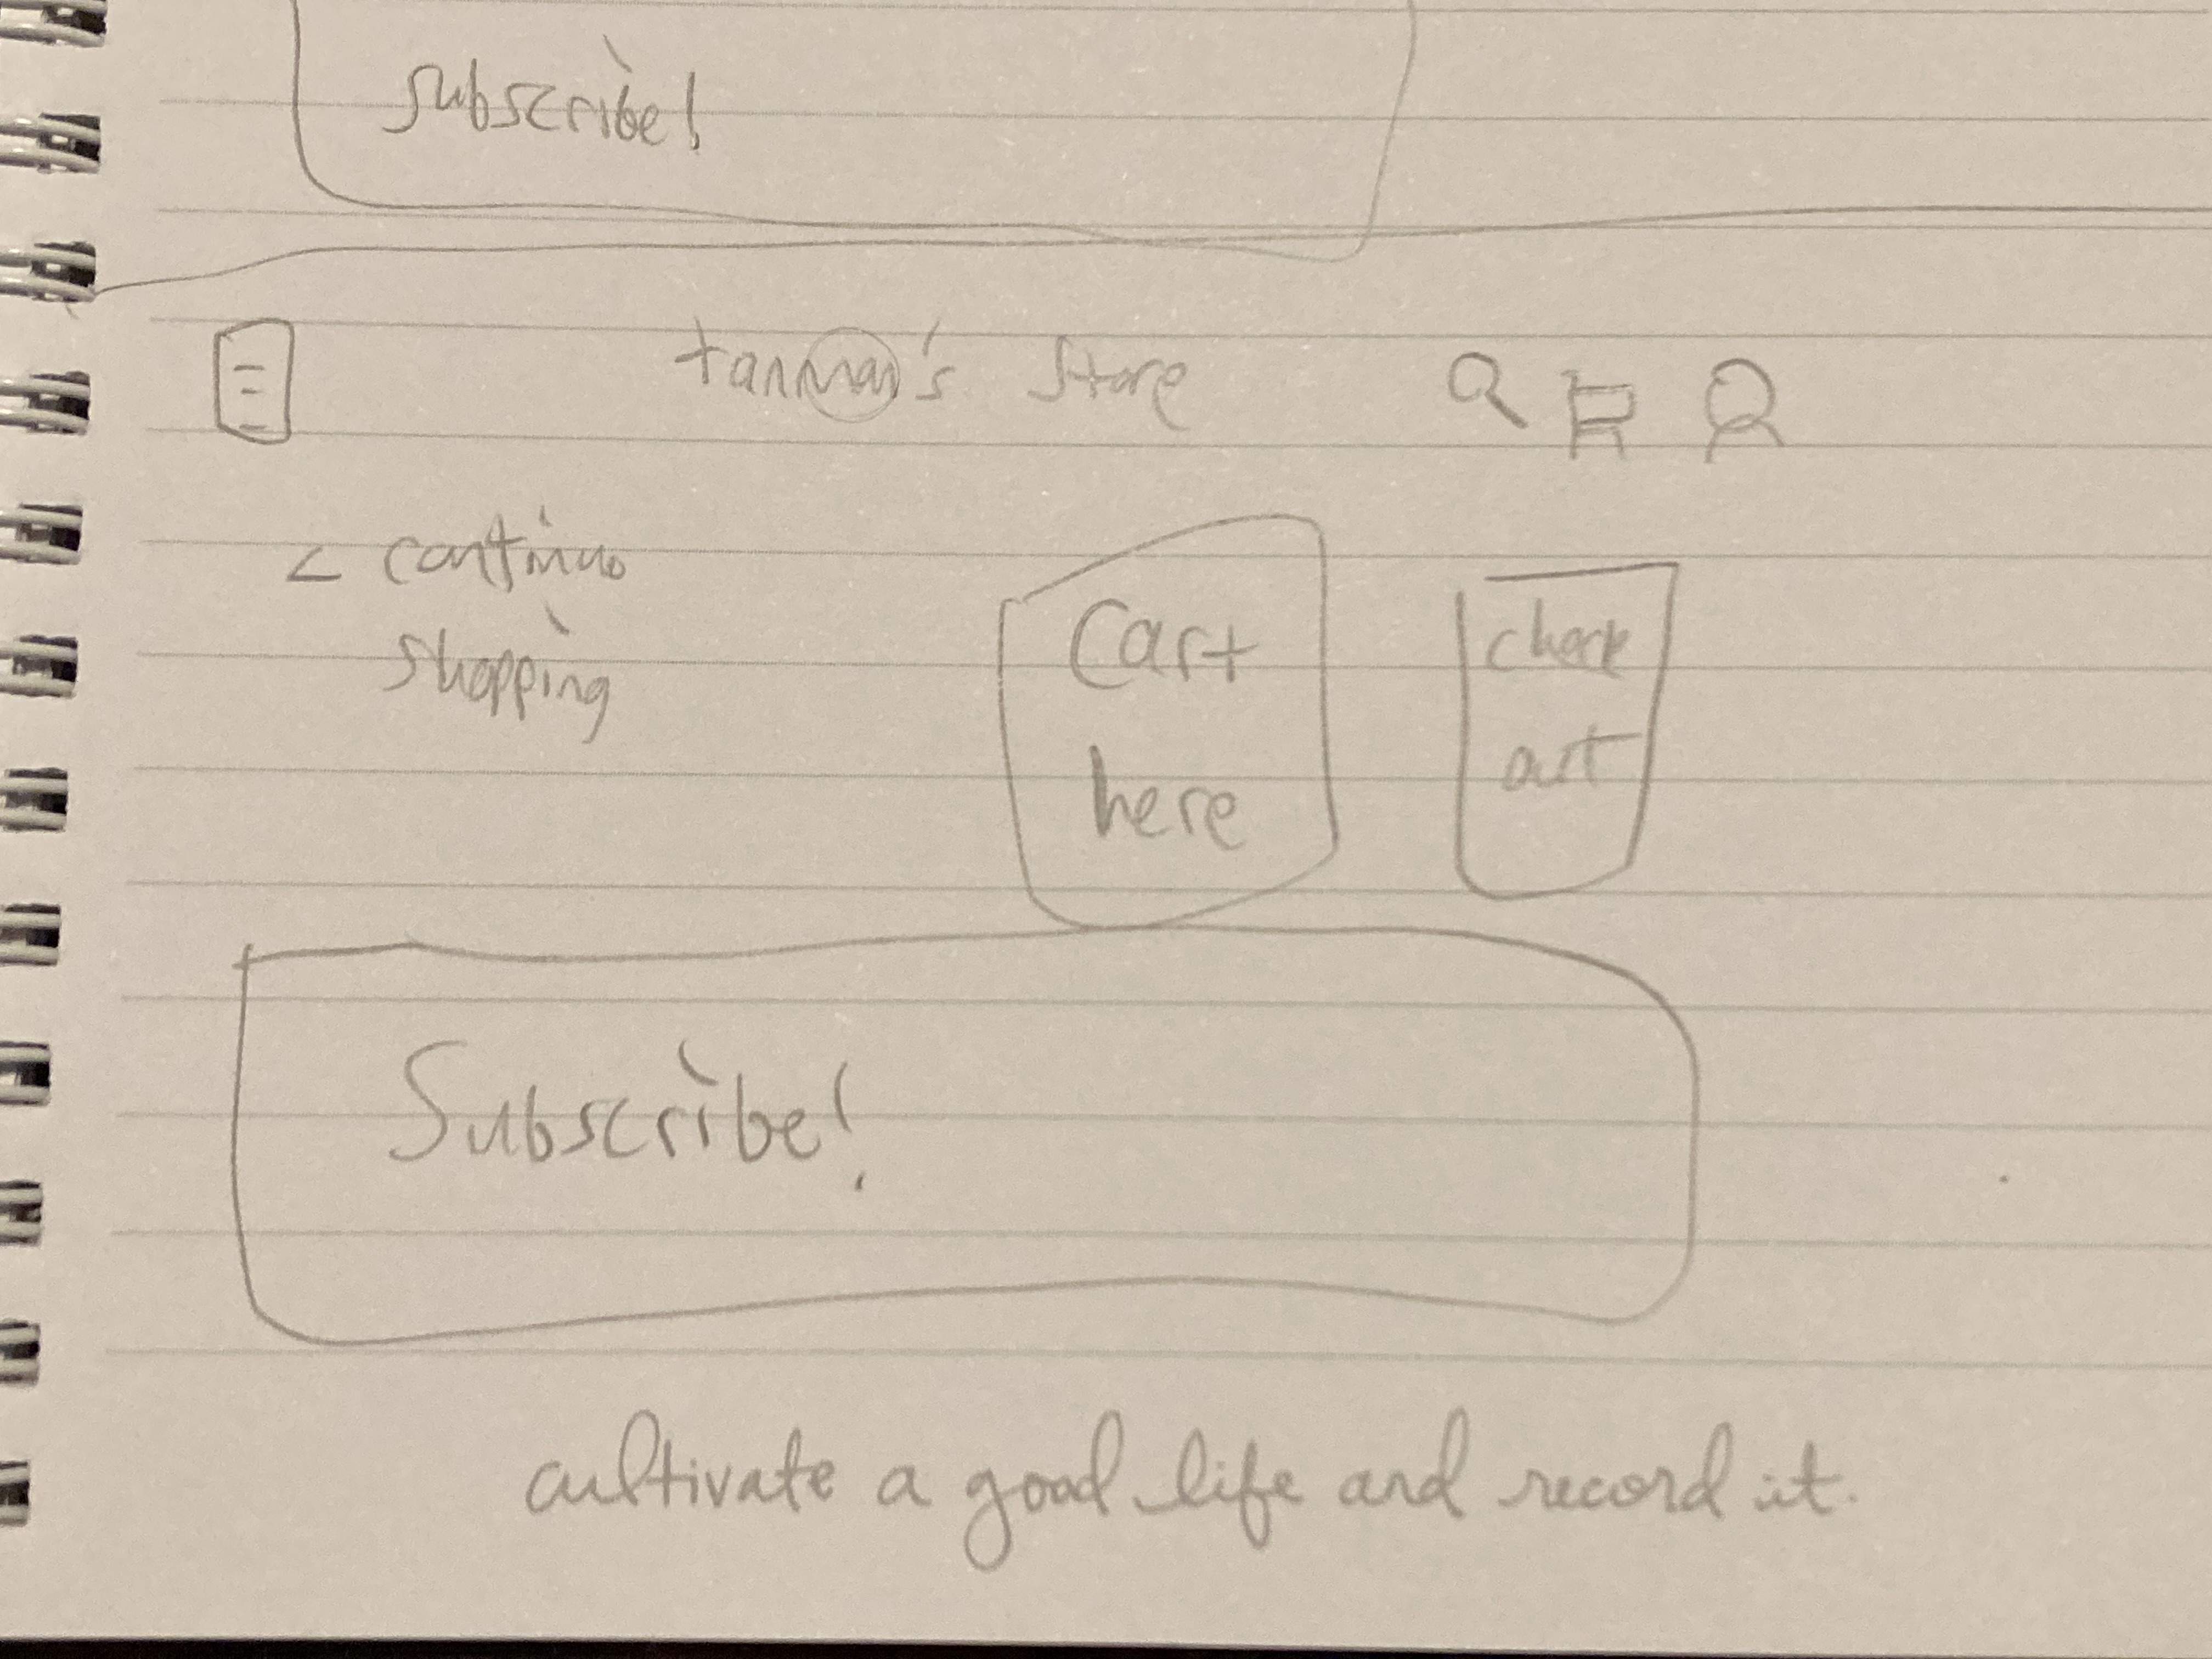 Subscribe!
's Store
< continue
shopping
Cart
here
check
out
Subscribe!
cultivate a good life and record it.